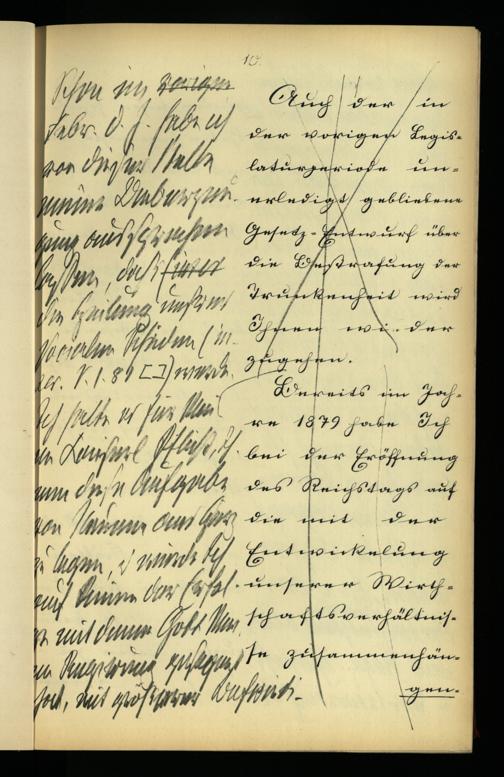 10.
Schon im vorigen
Febr. d. J. habe ich
von dieser Stelle
meine Ueberzeu-
gung aussprechen
lassen, daß
die Heilung unserer
socialen Schäden (in-
ser. V. 1. 89 [ ]) werde.
Ich halte es für Mei-
ne Kaiserl Pflicht,
diese Aufgabe
von Neuem ans Herz
zu legen, u würde Ich
auf keinen der Erfol-
ge mit denen Gott Mei-
ne Regierung gesegnet
hat, mit größerer Befriedi-
Auch der in
der vorigen Legis-
laturperiode un-
erledigt gebliebene
Gesetz-Entwurf über
die Bestrafung der
Trunkenheit wird
Ihnen wieder
zugehen.
Bereits im Jah-
re 1879 habe Ich
bei der Eröffnung
des Reichstags auf
die mit der
Entwickelung
unserer Wirth-
schaftsverhältnis-
se zusammenhän-
gen-